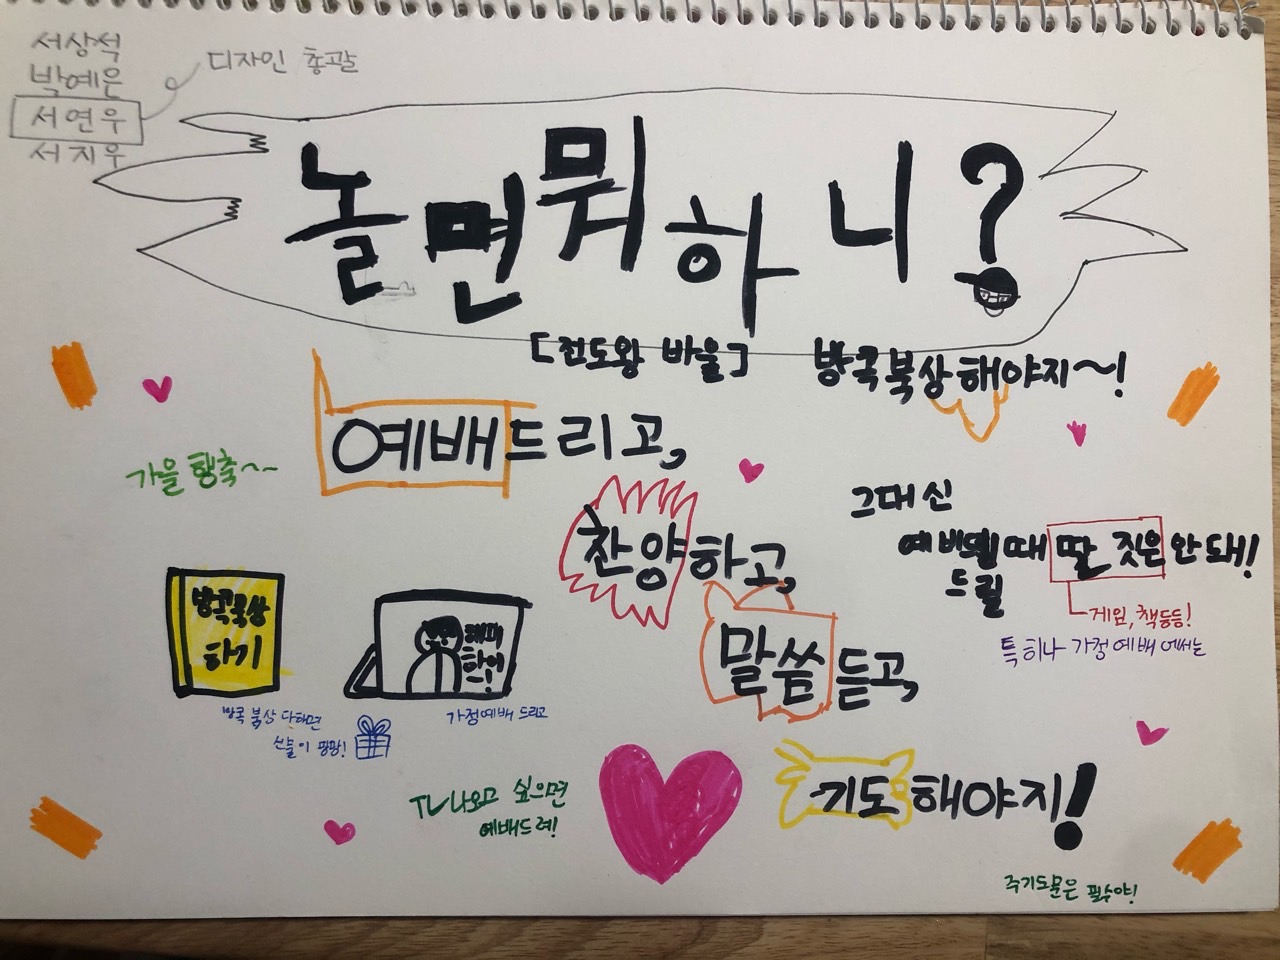 서상석
박예은
서연우
서지우
디자인 총괄
놀면뭐하니?
[전도왕 바울]
방콕묵상해야지~!
예배드리고,
가을 행축~~
찬양하고,
그대신
예배드릴때 딸 짓은 안돼!
게임, 책등등!
특히나 가정예배에서는
말씀 듣고,
방콕묵상
하기
방콕 묵상 단하면
선물이 팡팡!
가정예배 드리고
TV나오고 싶으면
예배드려!
기도해야지!
주기도문은 필수야!